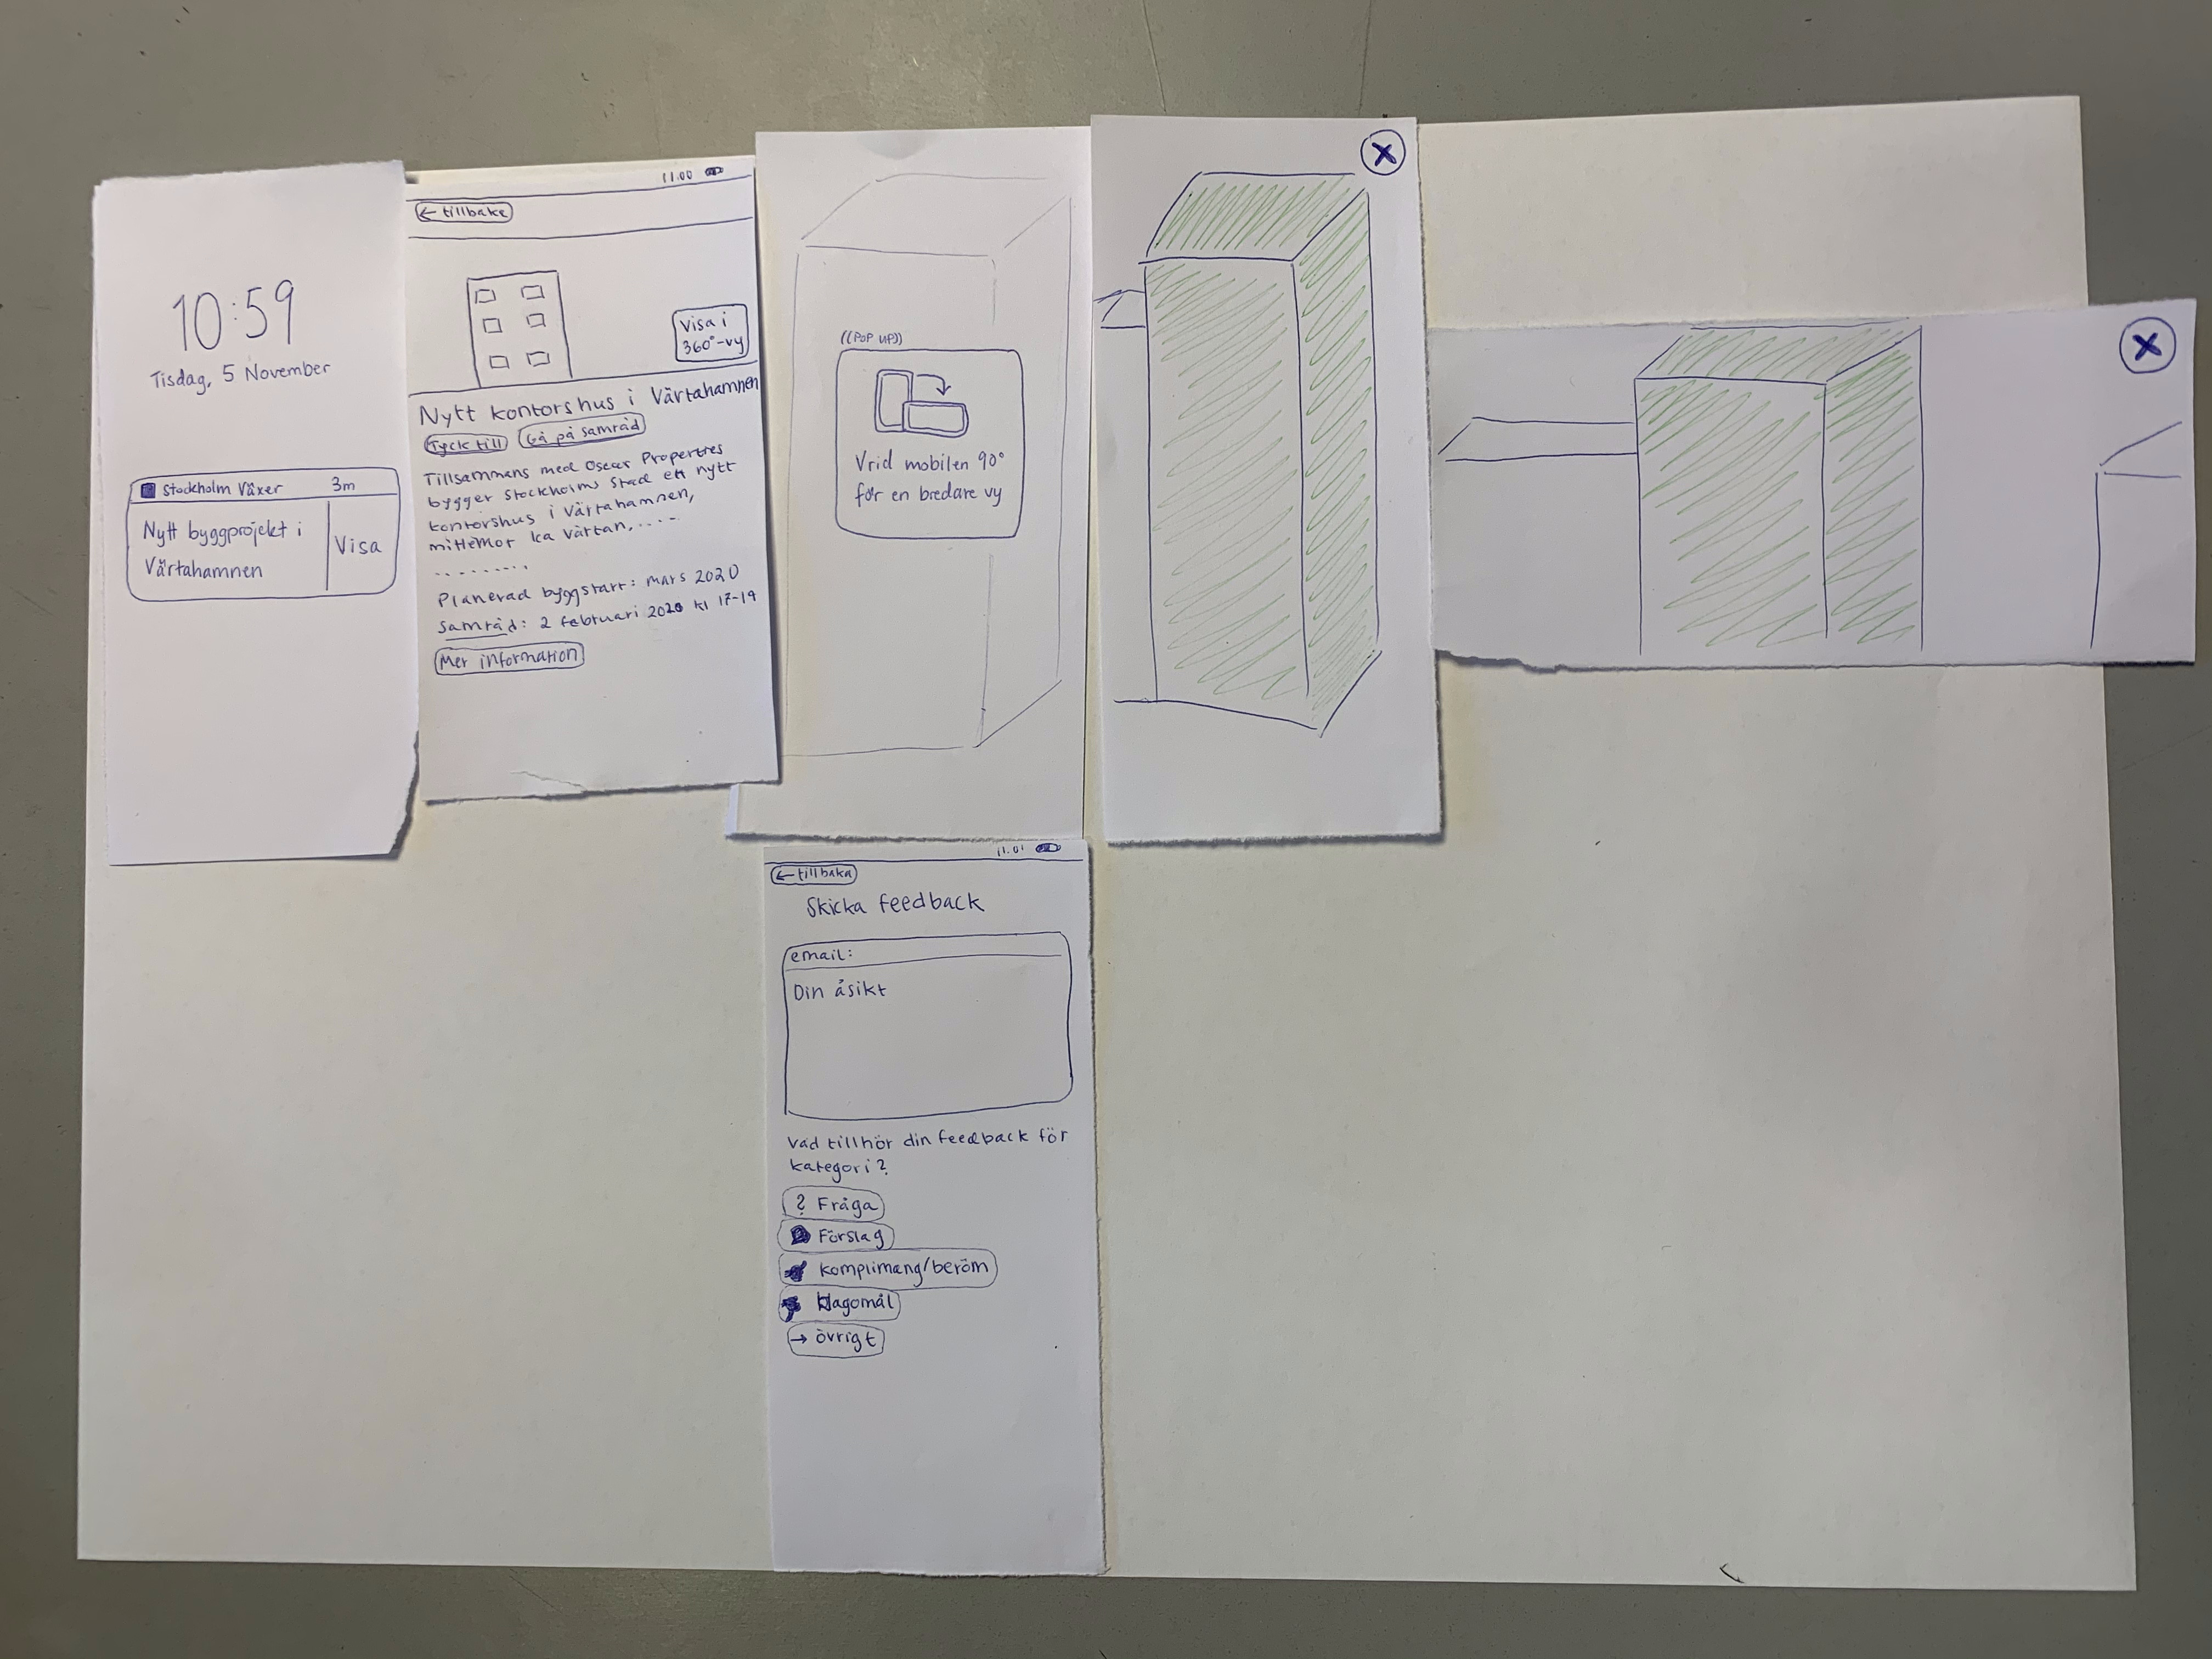 10:59
Tisdag, 5 November
Stockholm Växer 3m
Nytt byggprojekt i
Värtahamnen
Visa
11.00
← tillbaka
Visa i
360°-vy
Nytt kontorshus i Värtahamnen
Tyck till Gå på samråd
Tillsammans med Oscar Properties
bygger Stockholms Stad ett nytt
kontorshus i Värtahamnen,
mittemot Ica Värtan, . . . .
. . . . . . . . .
Planerad byggstart: mars 2020
Samråd: 2 februari 2020 kl 17-19
Mer information
((POP UP))
Vrid mobilen 90°
för en bredare vy
X
X
11.01
← tillbaka
Skicka feedback
email:
Din åsikt
Vad tillhör din feedback för
kategori?
? Fråga
Förslag
Komplimang/beröm
Klagomål
→ övrigt